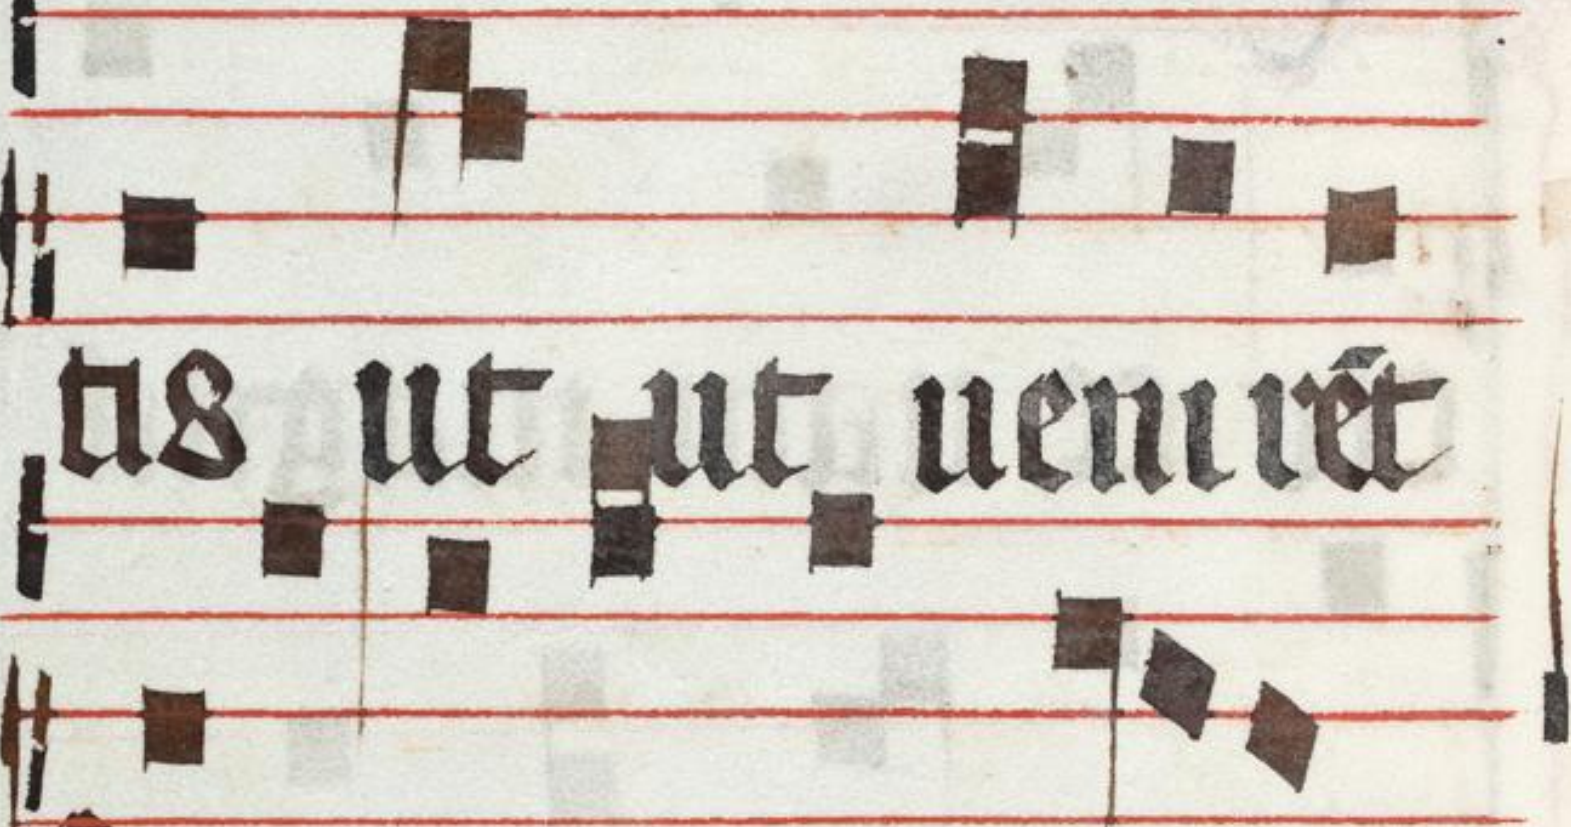 tis ut ut uenirēt